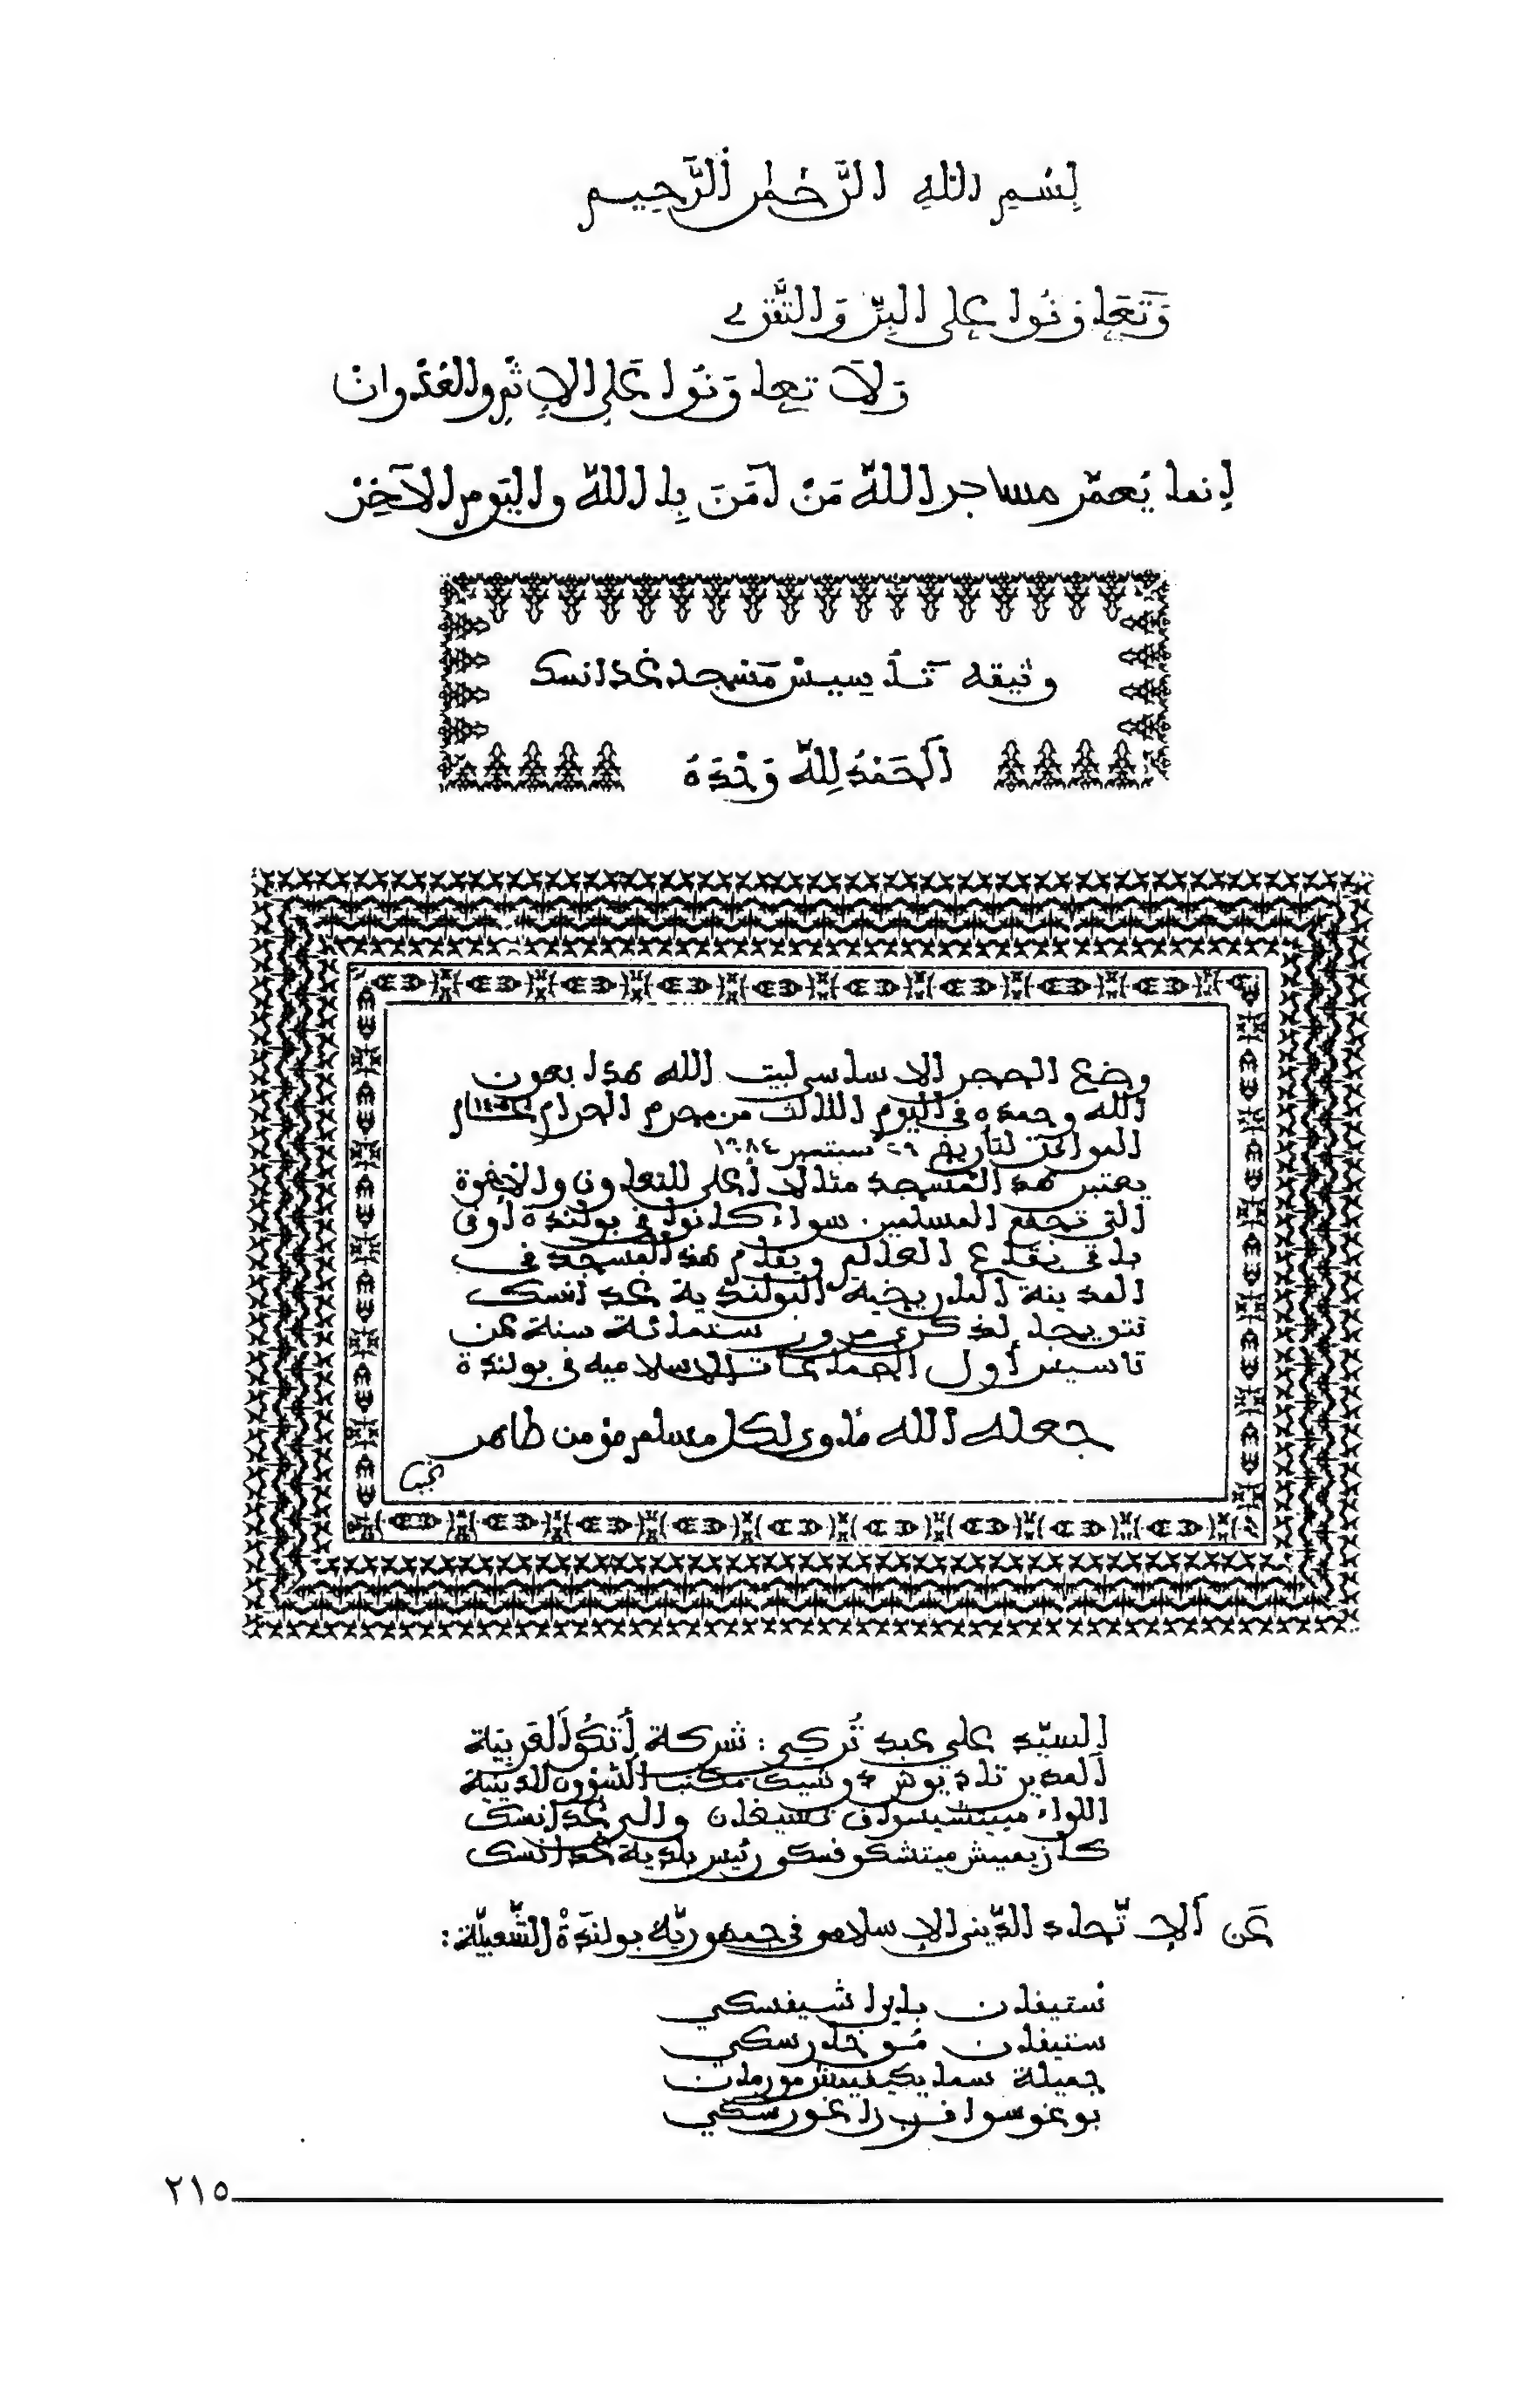 بِسْمِ اللهِ الرَّحْمٰنِ الرَّحِيم
وَتَعَاوَنُوا عَلى البِرِّ وَالتَّقوى
وَلَا تعاوَنُوا عَلى الاِثْمِ والعُدْوانْ
اِنما يَعمّر مساجد اللّٰه مَنْ اٰمَنَ بِا اللّٰه واليَومِ الآخِرْ
وثيقه تأسيسْ مَسْجد غدانسك
اَلحَمْدُ لِلّٰه وَحْدَهُ
وضع الحجر الاساسى لبيت الله هذا بعون
الله وحمده فى اليوم الثالث من محرم الحرام عام ١٤٠٥
الموافق لتاريخ ٢٩ سبتمبر ١٩٨٤
يعتبر هذ المَسْجد مثالا اعلى للتعاون والاخوة
التى تجمع المسلمين سواء كانوا فى بولندة اوفى
باقى بقاع العالم ويقام هذ المسجد فى
المدينة التاريخية البولندية غدانسك
تتويجا لذكرى مرور ستمائة سنة عن
تاسيس اول الجماعات الاسلاميه فى بولندة
جعله الله ماوى لكل مسلم مؤمن طاهر
السيّد على عبد تُركي : شركة أتكو العَربيَة
المدير تاديوش دوسيك مكتب الشؤون الدينية
اللواء ميتشيسواف تسيغان والى غدانسك
كازيميش ريتشكوفسكو رئيس بلدية غدانسك
عَن الاِتّحاد الدّينى الاِسلامى فى جمهوريّه بولندَةْ الشّعبيّة :
ستيفان بايرا شيفسكي
ستيفان مُوخارسكى
جميلة سمايكيفيتش مورمان
بوغوسواف زاغورسكي
٢١٥